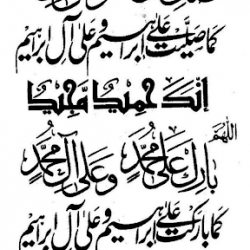 كما صليت على إبراهيم وعلى آل إبراهيم
إنك حميد مجيد
اللهم
بارك على محمد وعلى آل محمد
كما باركت على إبراهيم وعلى آل إبراهيم